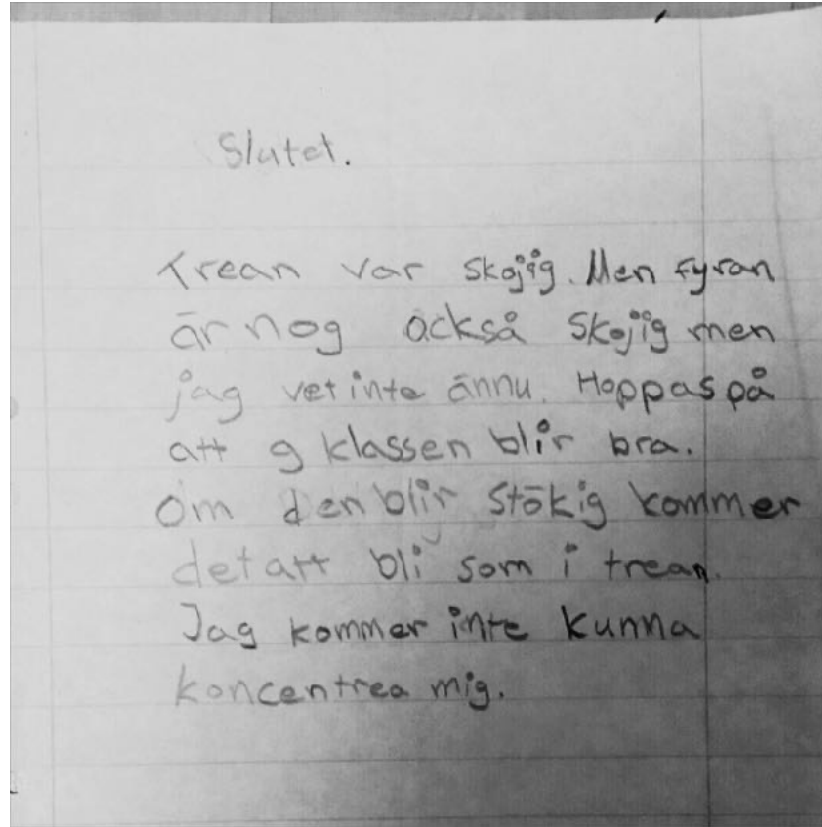 Slutet.
Trean var skojig. Men fyran
är nog också skojig men
jag vet inte ännu. Hoppas på
att 9 klassen blir bra.
Om den blir stökig kommer
det att bli som i trean.
Jag kommer inte kunna
koncentrea mig.